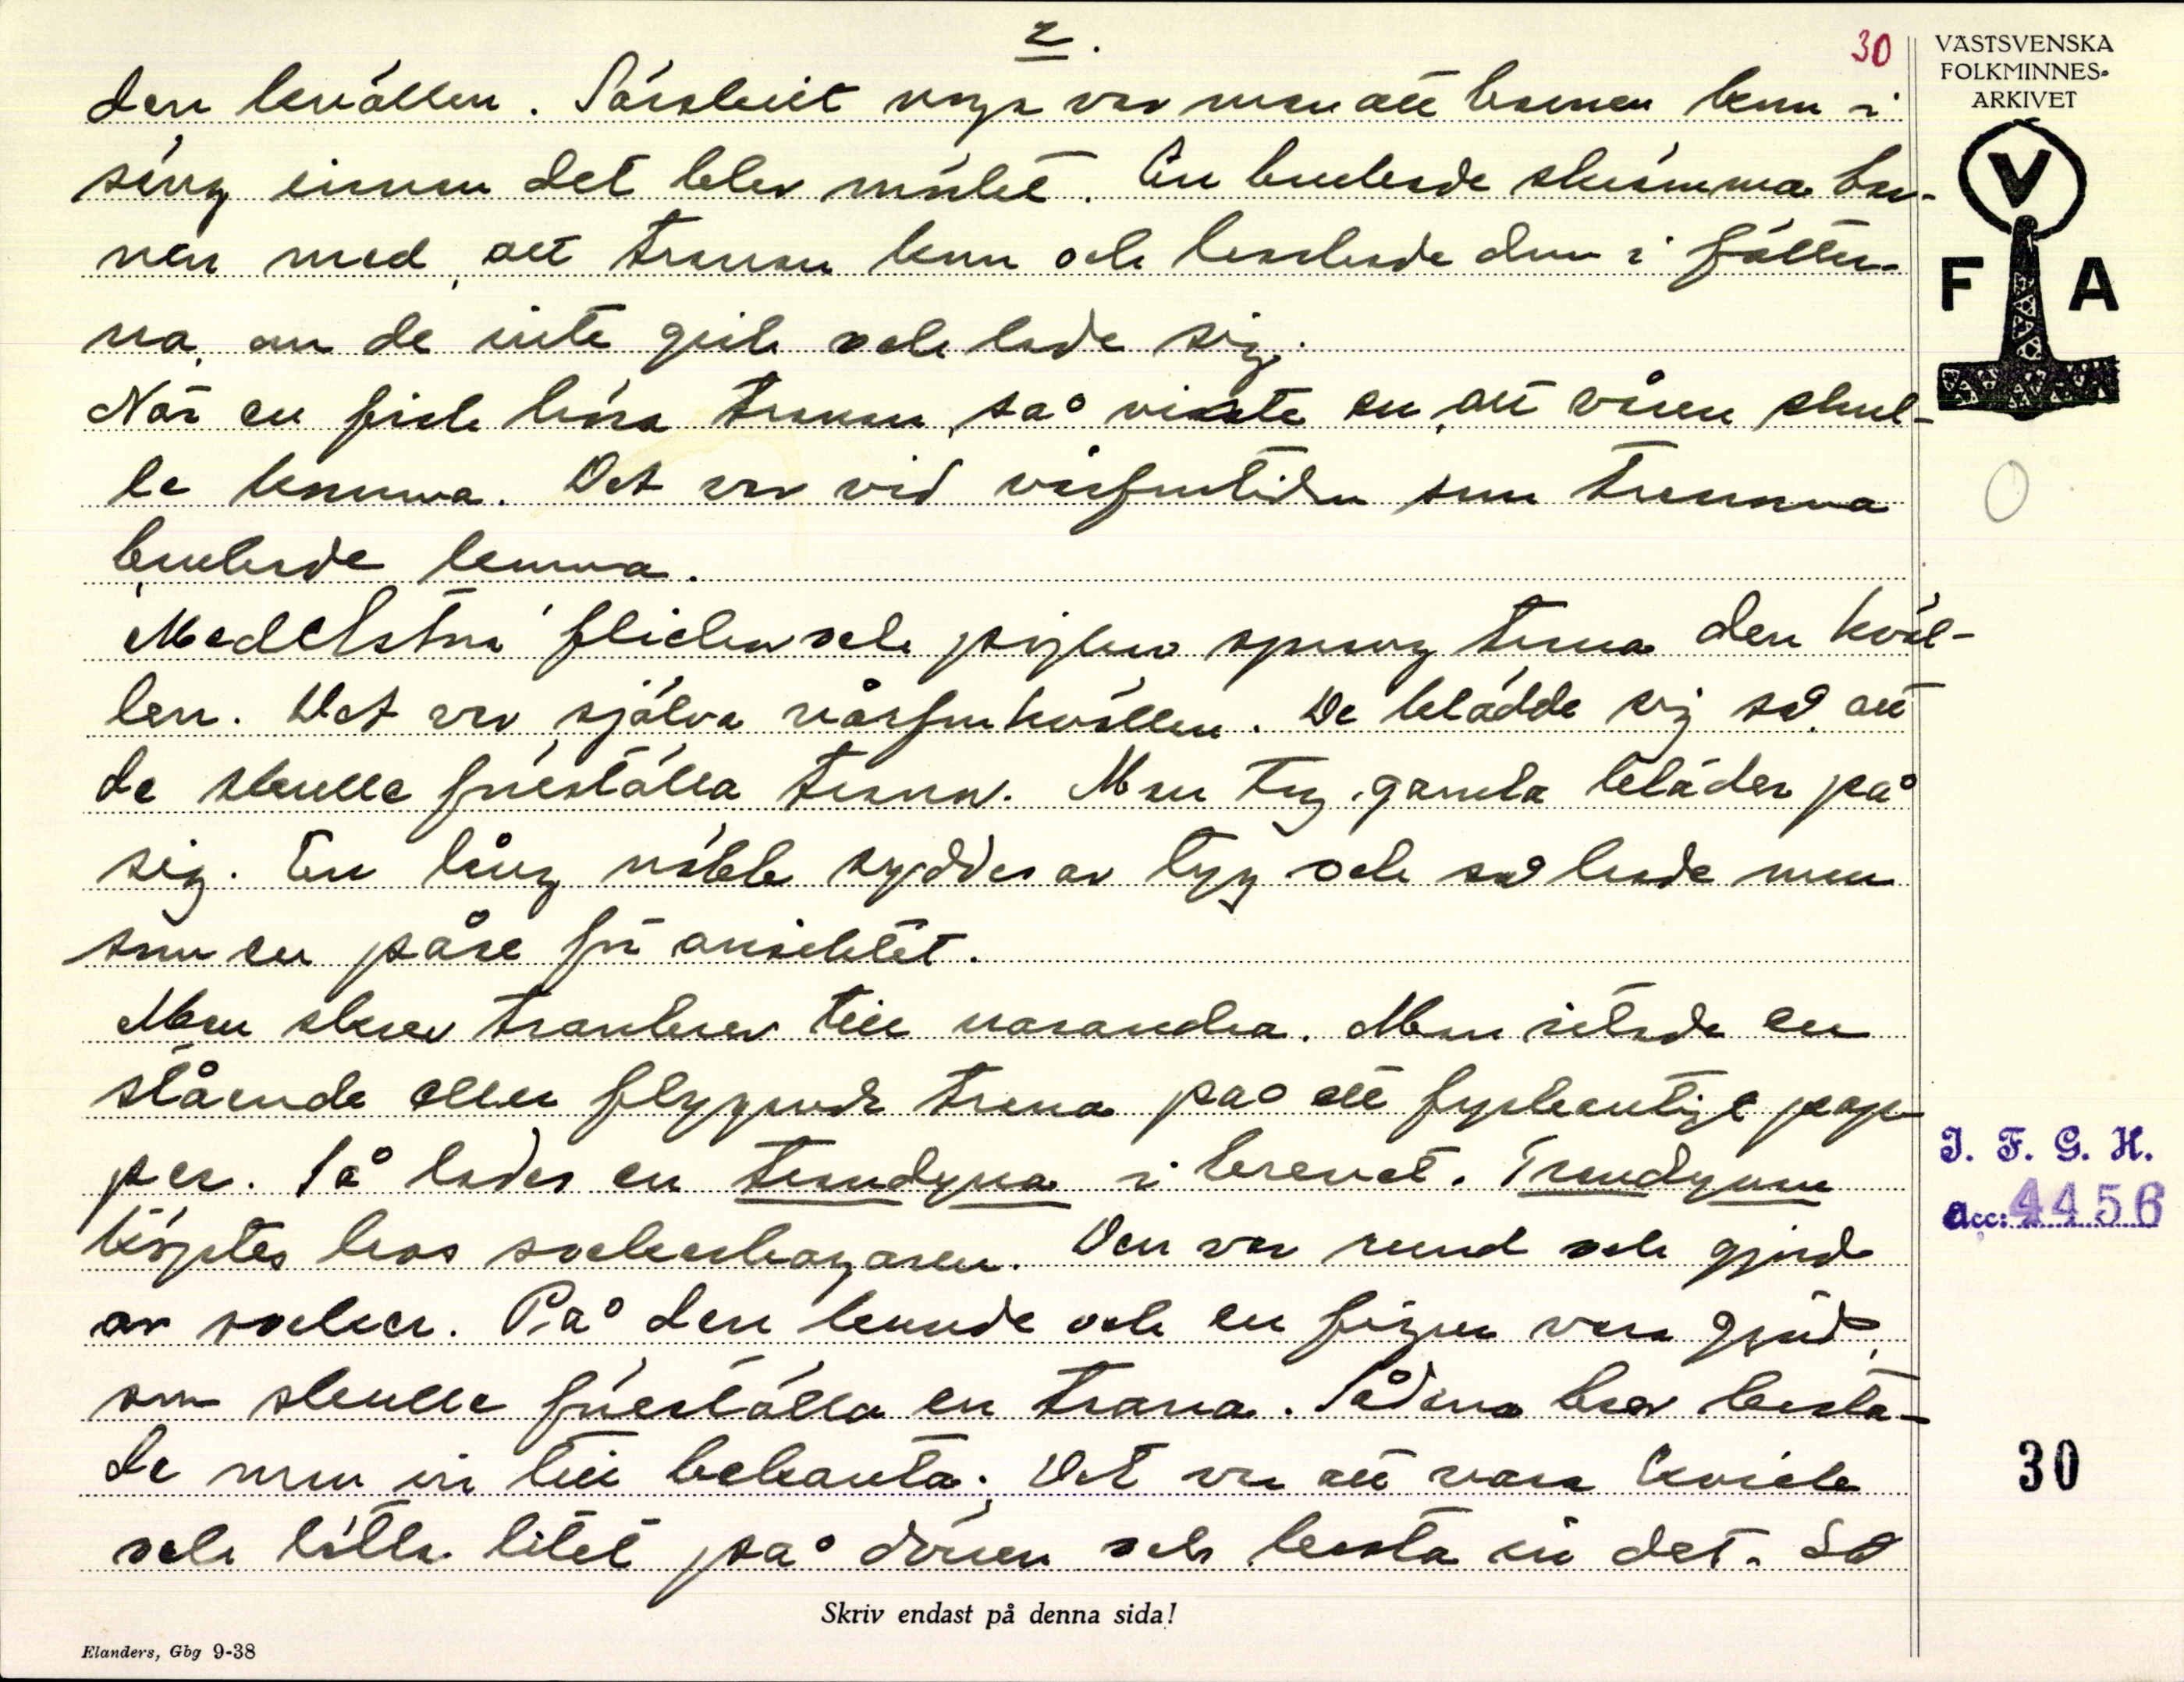 2.
30
VÄSTSVENSKA
FOLKMINNES-
ARKIVET
V
F A
den kvällen. Särskilt noga var man att barnen kom i
säng innan det blev mörkt. En brukade skrämma bar-
nen med, att tranan kom och hackade dem i fötter-
na, om de inte gick och lade sig.
När en fick höra tranan, så visste en, att våren skul-
le komma. Det var vid vårfrutiden som tranorna
brukade komma.
Medelstora flickor och pojkar sprang trana den kväl-
len. Det var själva vårfrukvällen. De klädde sig så att
de skulle föreställa tranor. Man tog gamla kläder på
sig. En lång näbb syddes av tyg och så hade man
som en påse för ansiktet.
Man skrev tranbrev till varandra. Man ritade en
stående eller flygande trana på ett fyrkantigt pap-
per. Så lades en trandyna i brevet. Trandynan
köptes hos sockerbagaren. Den var rund och gjord
av socker. På den kunde och en figur vara gjord,
som skulle föreställa en trana. Sådana brev kasta-
de man in till bekanta. Det var att vara kvick
och lätta litet på dörren och kasta in det. Så
I. F. G. H.
Acc: 4456
30
Skriv endast på denna sida!
Elanders, Gbg 9-38